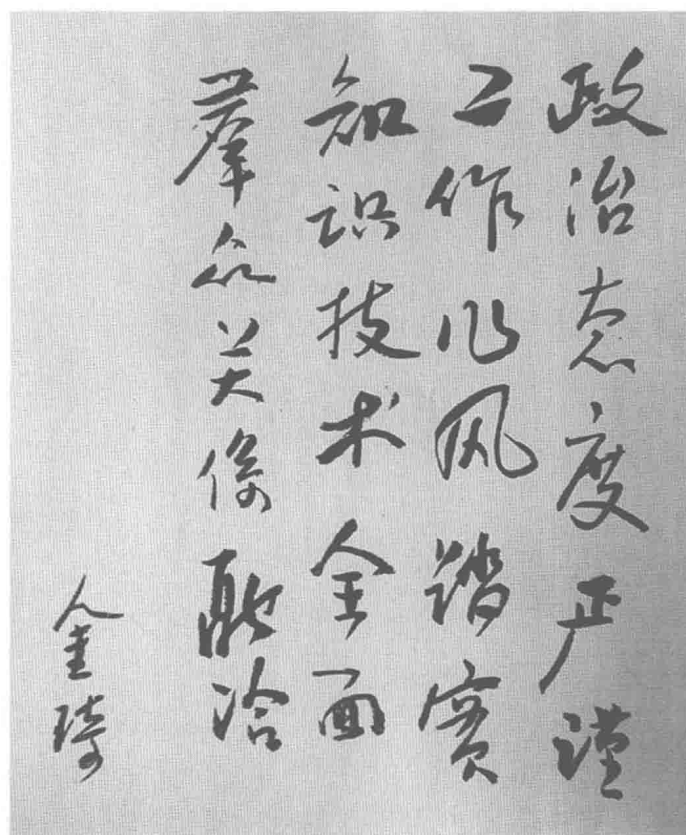 政治态度严谨
工作作风踏实
知识技术全面
群众关係融洽
金琦